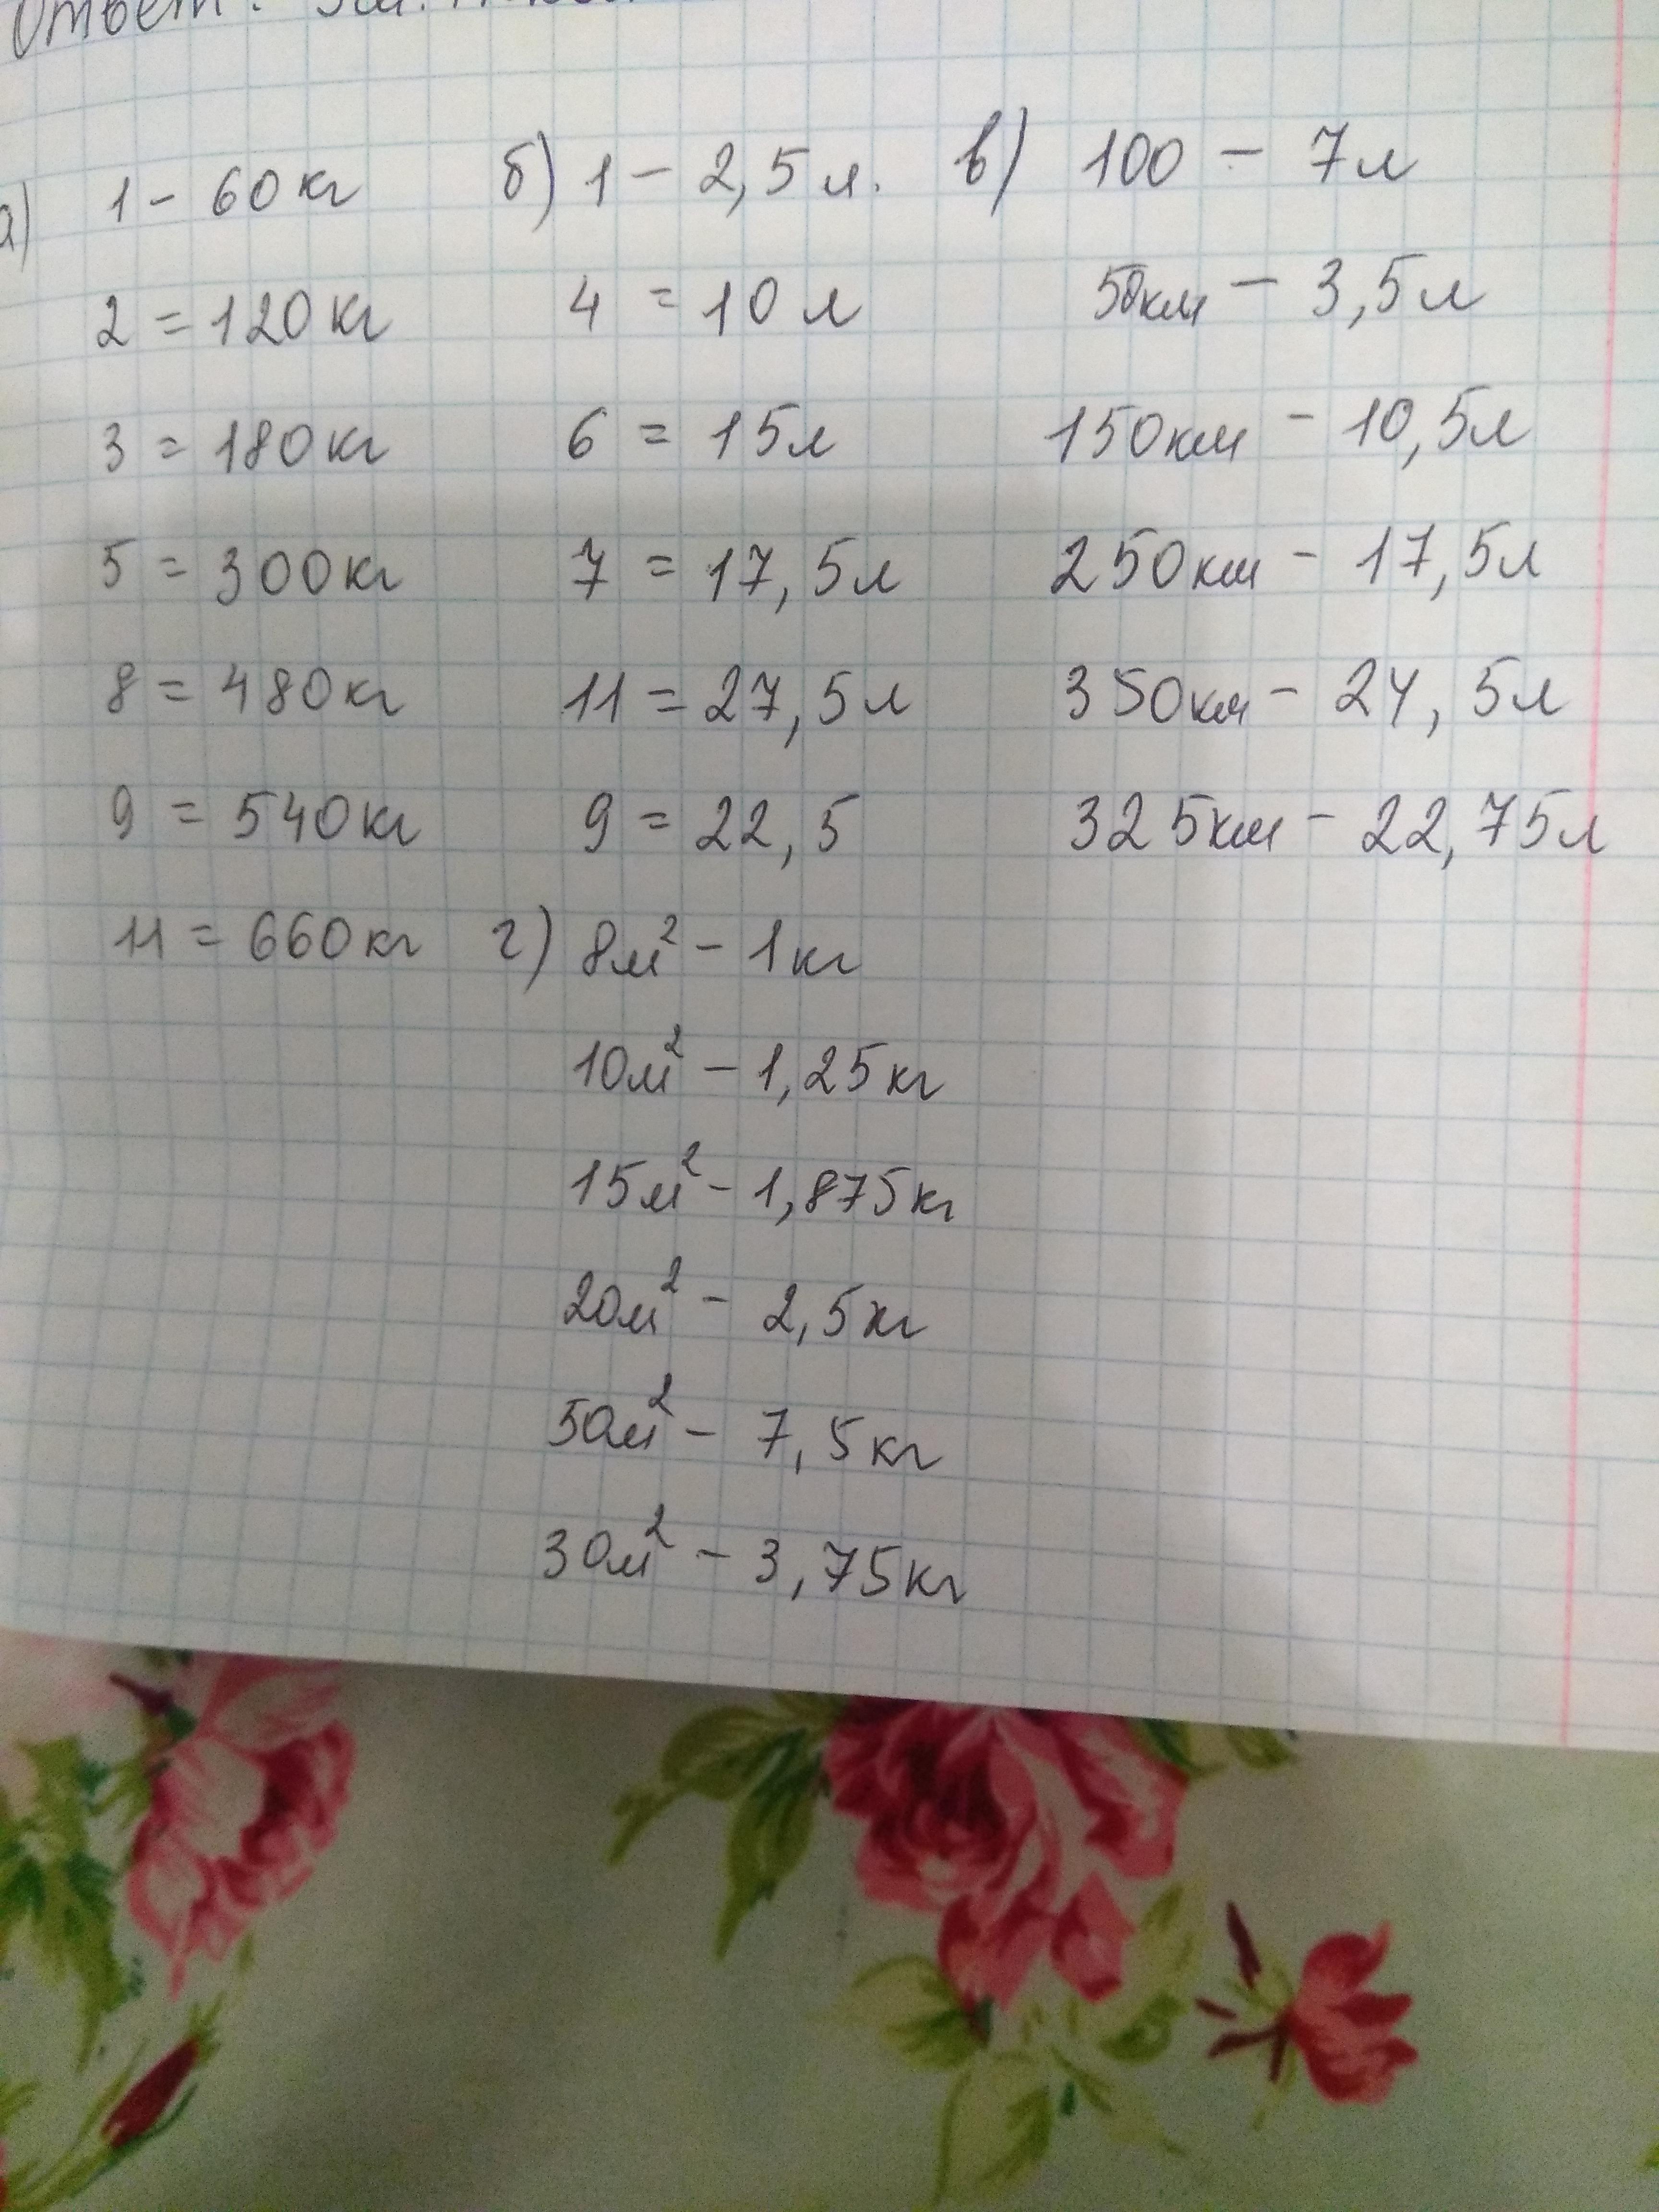 Ответ:
а) 1 - 60 кг
2 = 120 кг
3 = 180 кг
5 = 300 кг
8 = 480 кг
9 = 540 кг
11 = 660 кг
б) 1 - 2,5 л.
4 = 10 л
6 = 15 л
7 = 17,5 л
11 = 27,5 л
9 = 22,5
в) 100 - 7 л
50 км - 3,5 л
150 км - 10,5 л
250 км - 17,5 л
350 км - 24,5 л
325 км - 22,75 л
г) 8 м² - 1 кг
10 м² - 1,25 кг
15 м² - 1,875 кг
20 м² - 2,5 кг
50 м² - 7,5 кг
30 м² - 3,75 кг